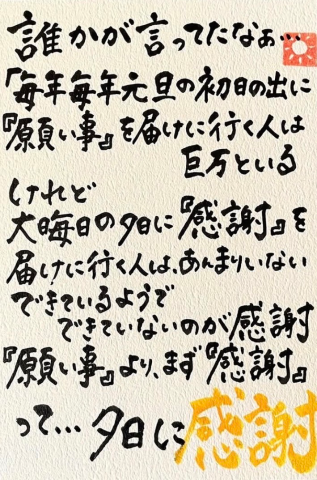 誰かが言ってたなぁ…
「毎年毎年元旦の初日の出に
『願い事』を届けに行く人は
巨万といる
けれど
大晦日の夕日に『感謝』を
届けに行く人は、あんまりいない
できているようで
できていないのが感謝
『願い事』より、まず『感謝』
って…夕日に感謝